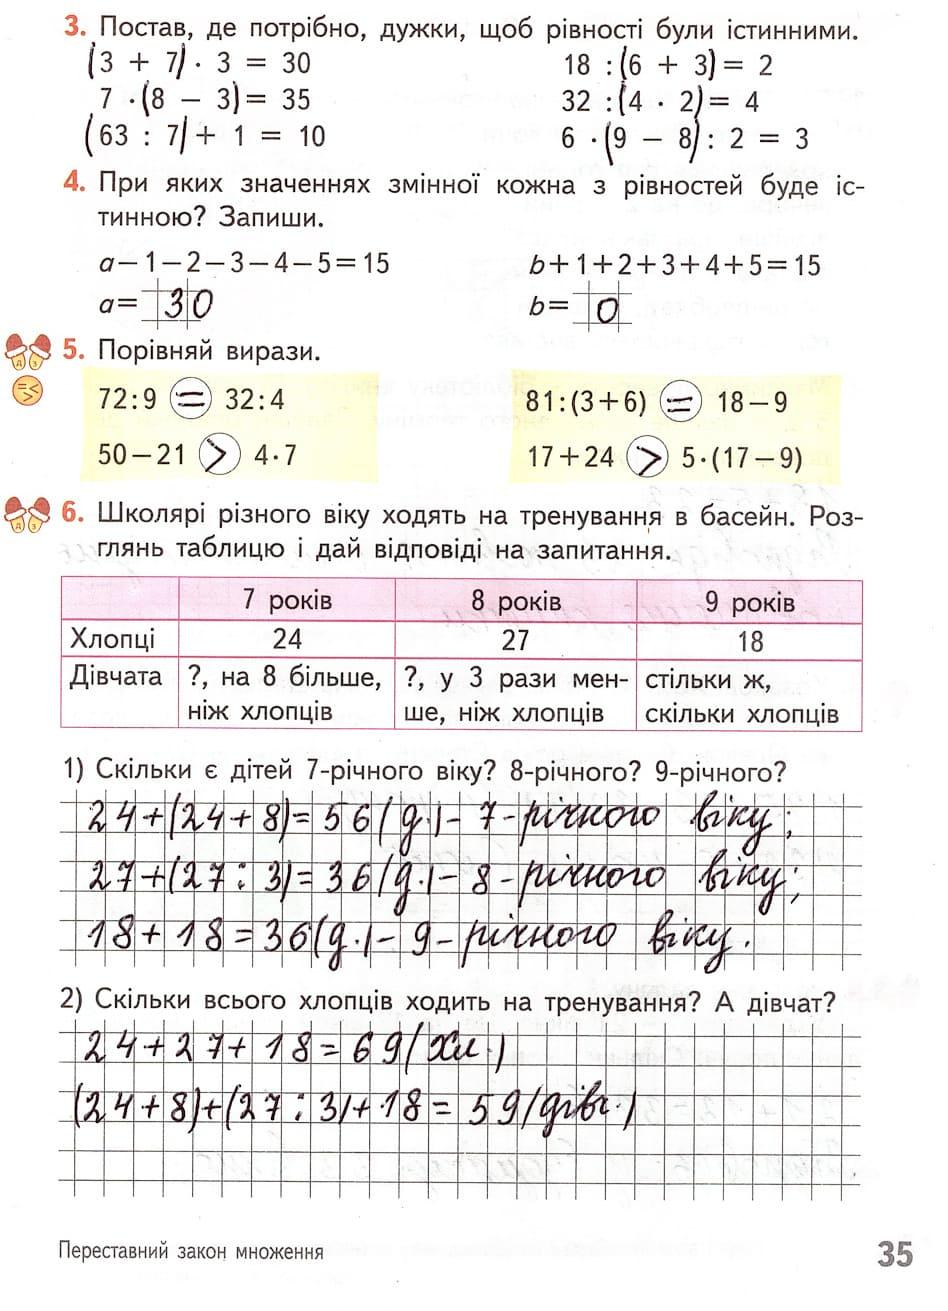 3. Постав, де потрібно, дужки, щоб рівності були істинними.
(3 + 7) · 3 = 30 18 : (6 + 3) = 2
7 · (8 − 3) = 35 32 : (4 · 2) = 4
(63 : 7) + 1 = 10 6 · (9 − 8) : 2 = 3
4. При яких значеннях змінної кожна з рівностей буде іс-
тинною? Запиши.
a−1−2−3−4−5=15 b+1+2+3+4+5=15
a= 30 b= 0
5. Порівняй вирази.
72:9 = 32:4 81:(3+6) = 18−9
50−21 > 4·7 17+24 > 5·(17−9)
6. Школярі різного віку ходять на тренування в басейн. Роз-
глянь таблицю і дай відповіді на запитання.
7 років 8 років 9 років
Хлопці 24 27 18
Дівчата ?, на 8 більше, ?, у 3 рази мен- стільки ж,
ніж хлопців ше, ніж хлопців скільки хлопців
1) Скільки є дітей 7-річного віку? 8-річного? 9-річного?
24+(24+8)=56(д.)−7-річного віку;
27+(27:3)=36(д.)−8-річного віку;
18+18=36(д.)−9-річного віку.
2) Скільки всього хлопців ходить на тренування? А дівчат?
24+27+18=69(хл.)
(24+8)+(27:3)+18=59(дівч.)
Переставний закон множення 35